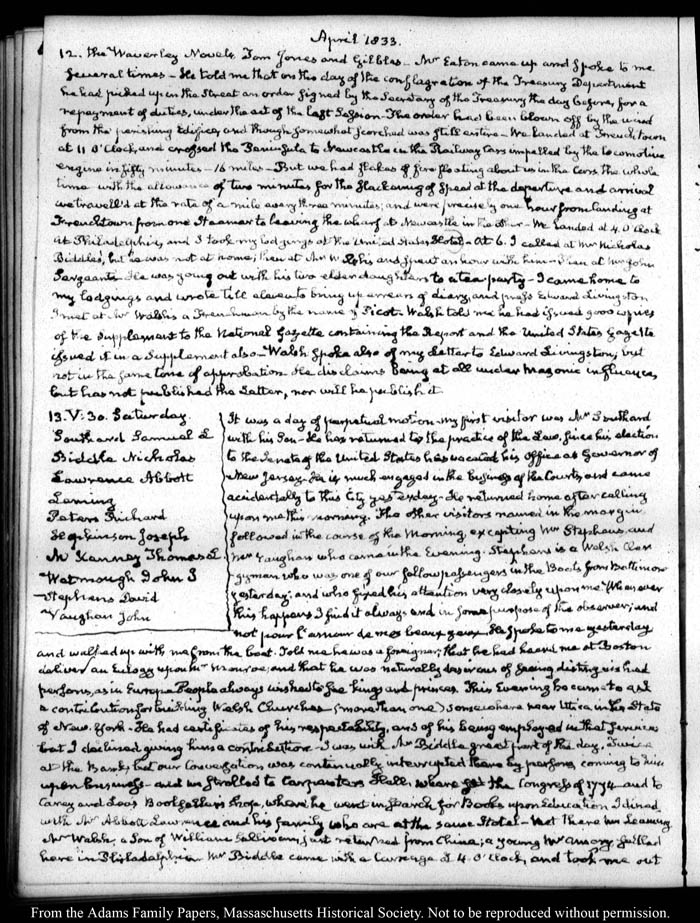 April 1833.
12. the Waverley Novels Tom Jones and Gilblas — Mr Eaton came up and spoke to me
several times — He told me that on the day of the conflagration of the Treasury Department
he had picked up in the Street an order signed by the Secretary of the Treasury the day before, for a
repayment of duties, under the act of the last Session. The order had been blown off by the wind
from the perishing Edifice, and though somewhat scorched was still entire — We landed at French town
at 11 O'Clock, and crossed the Peninsula to Newcastle in the Railway Cars impelled by the locomotive
engine in fifty minutes — 16 miles — But we had flakes of fire floating about us in the Cars the whole
time with the allowance of two minutes for the slackening of speed at the departure and arrival
we travell'd at the rate of a mile every three minutes; and were precisely one hour from landing at
Frenchtown from one Steamer to leaving the wharf at Newcastle in the other — We landed at 4. O'Clock
at Philadelphia, and I took my lodgings at the United States Hotel — At 6. I called at Mr Nicholas
Biddle's, but he was not at home; then at Mr Walsh's and spent an hour with him — Then at Mr John
Sergeant's. He was going out with his two elder daughters to a tea-party — I came home to
my lodgings and wrote till eleven to bring up arrears of diary, and Edward Livingston
I met at Mr Walsh's a Frenchman by the name of Picot. Walsh told me he had issued 9000 copies
of the Supplement to the National Gazette containing the Report and the United States Gazette
issued it in a Supplement also — Walsh spoke also of my Letter to Edward Livingston, but
not in the same tone of approbation. He disclaims being at all under Masonic influence,
but has not published the Letter, nor will he publish it.
13. V: 30. Saturday.
Southard Samuel L
Biddle Nicholas
Lawrence Abbott
Leming
Peters Richard
Hopkinson Joseph
McKenney Thomas L
Watmough John G
Stephens David
Vaughan John
It was a day of perpetual motion — my first visitor was Mr Southard
with his Son — He has returned to the practice of the Law, since his election
to the Senate of the United States has vacated his office as Governor of
New Jersey — He is much engaged in the business of the Courts, and came
accidentally to this City yesterday — He returned home after calling
upon me this morning. The other visitors named in the margin
followed in the course of the Morning excepting Mr Stephens, and
Mr Vaughan who came in the Evening. Stephens is a Welsh Cler-
gyman who was one of our fellow passengers in the Boats from Baltimore
yesterday; and who fixed his attention very closely upon me. Whenever
this happens I find it always end in some purpose of the observer; and
not pour l'amour de mes beaux yeux. He spoke to me yesterday
and walked up with me from the boat. Told me he was a foreigner; that he had heard me at Boston
deliver an Eulogy upon Mr Monroe, and that he was naturally desirous of seeing distinguished
persons, as in Europe People always wished to see kings and princes. This Evening he came to ask
a contribution for building Welsh Churches (more than one) somewhere near Utica in the State
of New-York — He had certificates of his respectability, and of his being employed in that service
but I declined giving him a contribution — I was with Mr Biddle great part of the day. Twice
at the Bank, but our Conversation was continually interrupted there by persons coming to him
upon business — and we strolled to Carpenters Hall, where sat the Congress of 1774 — and to
Carey and Lea's Booksellers shop, where he went in search for Books upon Education. I dined
with Mr Abbott Lawrence and his family who are at the same Hotel — Met there Mr Leaming
Mr Walsh, a Son of William Sullivan, just returned from China; a young Mr Amory settled
here in Philadelphia. Mr Biddle came with a Carriage at 4. O'Clock, and took me out
From the Adams Family Papers, Massachusetts Historical Society. Not to be reproduced without permission.